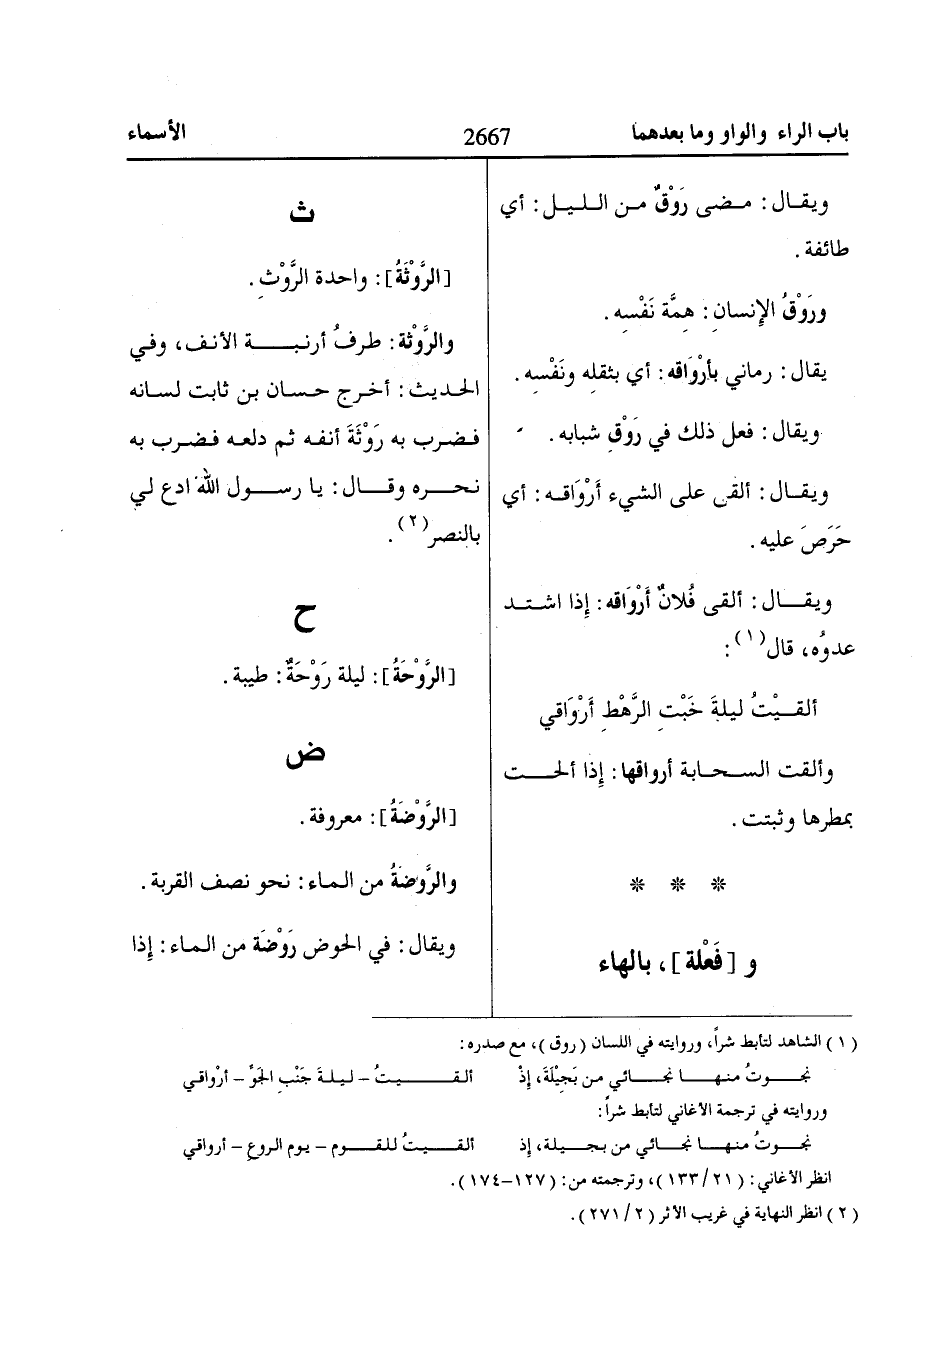 باب الراء والواو وما بعدهما
2667
الأسماء
ويقال: مضى رَوْقٌ من الليل: أي
طائفة.
ورَوْقُ الإنسانِ: هِمَّة نَفْسِه.
يقال: رماني بأرْوَاقه: أي بثقله ونَفْسِه.
ويقال: فعل ذلك في رَوْقِ شبابه.
ويقال: ألقى على الشيء أَرْوَاقه: أي
حَرَصَ عليه.
ويقال: ألقى فُلانٌ أَرْوَاقه: إذا اشتد
عدوُه، قال(١):
ألقيْتُ ليلةَ خَبْتِ الرَّهْطِ أَرْوَاقي
وألقت السحابة أرواقها: إذا ألحت
بمطرها وثبتت.
* * *
و [فَعْلة]، بالهاء
ث
[الرَّوْثَةُ]: واحدة الرَّوْثِ.
والرَّوْثة: طرفُ أرنبة الأنف، وفي
الحديث: أخرج حسان بن ثابت لسانه
فضرب به رَوْثَةَ أنفه ثم دلعه فضرب به
نحره وقال: يا رسول الله ادع لي
بالنصر(٢).
ح
[الرَّوْحَةُ]: ليلة رَوْحَةٌ: طيبة.
ض
[الرَّوْضَةُ]: معروفة.
والرَّوضَةُ من الماء: نحو نصف القربة.
ويقال: في الحوض رَوْضَة من الماء: إذا
(١) الشاهد لتأبط شراً، وروايته في اللسان (روق)، مع صدره:
نجوتُ منها نجائي من بَجِيْلَة، إذْ ألقيتُ – ليلةَ جَنْبِ الجَوِّ – أرْواقي
وروايته في ترجمة الأغاني لتأبط شراً:
نجوتُ منها نجائي من بجيلة، إذ ألقيتُ للقوم – يوم الروع – أرواقي
انظر الأغاني: (١٣٣/٢١)، وترجمته من: (١٢٧–١٧٤).
(٢) انظر النهاية في غريب الأثر (٢٧١/٢).